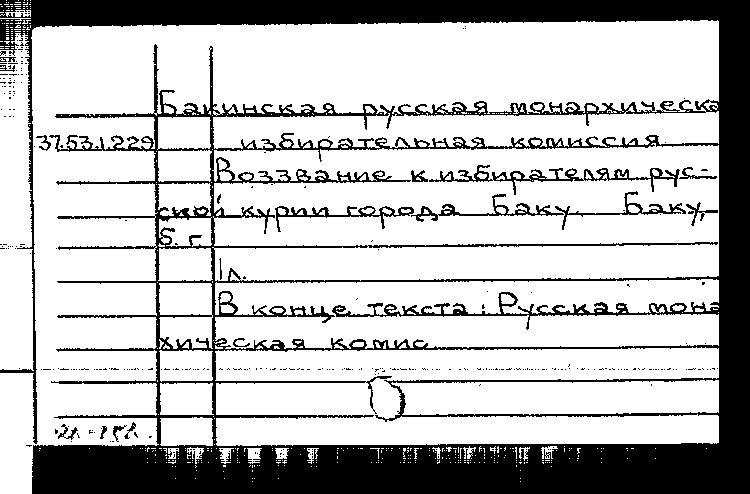 Бакинская русская монархическа
37.53.1.229 избирательная комиссия
Воззвание к избирателям рус-
ской курии города Баку. Баку,
б. г.
1л.
В конце текста: Русская мона
хическая комис